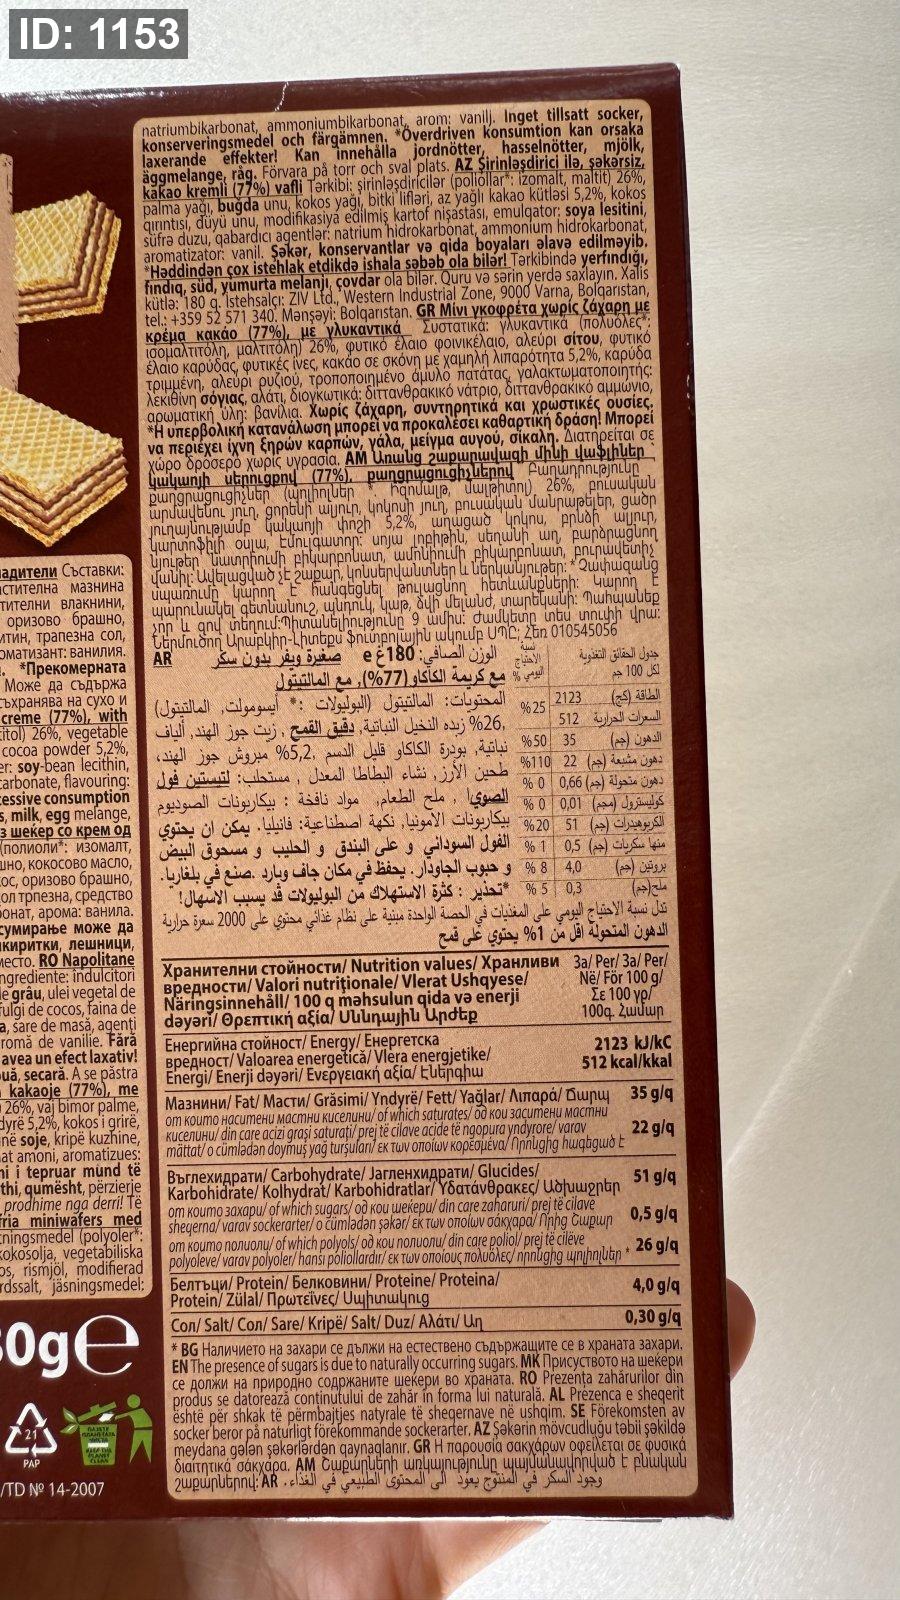 ID: 1153
natriumbikarbonat, ammoniumbikarbonat, arom: vanilj. Inget tillsatt socker,
konserveringsmedel och färgämnen. *Överdriven konsumtion kan orsaka
laxerande effekter! Kan innehålla jordnötter, hasselnötter, mjölk,
äggmelange, råg. Förvara på torr och sval plats. AZ Şirinləşdirici ilə, şəkərsiz,
kakao kremli (77%) vafli Tərkibi: şirinləşdiricilər (poliollar*: izomalt, maltit) 26%,
palma yağı, buğda unu, kokos yağı, bitki lifləri, az yağlı kakao kütləsi 5,2%, kokos
qırıntısı, düyü unu, modifikasiya edilmiş kartof nişastası, emulqator: soya lesitini,
süfrə duzu, qabardıcı agentlər: natrium hidrokarbonat, ammonium hidrokarbonat,
aromatizator: vanil. Şəkər, konservantlar və qida boyaları əlavə edilməyib.
*Həddindən çox istehlak etdikdə ishala səbəb ola bilər! Tərkibində yerfındığı,
fındıq, süd, yumurta melanjı, çovdar ola bilər. Quru və sərin yerdə saxlayın. Xalis
kütlə: 180 q. İstehsalçı: ZIV Ltd., Western Industrial Zone, 9000 Varna, Bolqarıstan,
tel.: +359 52 571 340. Mənşəyi: Bolqarıstan. GR Μίνι γκοφρέτα χωρίς ζάχαρη με
κρέμα κακάο (77%), με γλυκαντικά Συστατικά: γλυκαντικά (πολυόλες*:
ισομαλτιτόλη, μαλτιτόλη) 26%, φυτικό έλαιο φοινικέλαιο, αλεύρι σίτου, φυτικό
έλαιο καρύδας, φυτικές ίνες, κακάο σε σκόνη με χαμηλή λιπαρότητα 5,2%, καρύδα
τριμμένη, αλεύρι ρυζιού, τροποποιημένο άμυλο πατάτας, γαλακτωματοποιητής:
λεκιθίνη σόγιας, αλάτι, διογκωτικά: διττανθρακικό νάτριο, διττανθρακικό αμμώνιο,
αρωματική ύλη: βανίλια. Χωρίς ζάχαρη, συντηρητικά και χρωστικές ουσίες.
*Η υπερβολική κατανάλωση μπορεί να προκαλέσει καθαρτική δράση! Μπορεί
να περιέχει ίχνη ξηρών καρπών, γάλα, μείγμα αυγού, σίκαλη. Διατηρείται σε
χώρο δροσερό χωρίς υγρασία. AM Առանց շաքարավազի մինի վաֆլիներ
կակաոյի սերուցքով (77%), քաղցրացուցիչներով Բաղադրությունը
քաղցրացուցիչներ (պոլիոլներ *: Իզոմալթ, մալթիտոլ) 26%, բուսական
արմավենու յուղ, ցորենի ալյուր, կոկոսի յուղ, բուսական մանրաթելեր, ցածր
յուղայնությամբ կակաոյի փոշի 5,2%, աղացած կոկոս, բրնձի ալյուր,
կարտոֆիլի օսլա, էմուլգատոր: սոյա լոբիթին, սեղանի աղ, բարձրացնող
նյութեր նատրիումի բիկարբոնատ, ամոնիումի բիկարբոնատ, բուրավետիչ
վանիլ: Ավելացված չէ շաքար, կոնսերվանտներ և ներկանյութեր: * Չափազանց
սպառումը կարող է հանգեցնել թուլացնող հետևանքների: Կարող է
պարունակել գետնանուշ, պնդուկ, կաթ, ձվի մելանժ, տարեկանի: Պահպանեք
չոր և զով տեղում:Պիտանելիությունը 9 ամիս: Ժամկետը տես տուփի վրա:
Ներմուծող Արաբկիր-Լիտեքս ֆուտբոլային ակումբ ՍՊԸ; Հեռ 010545056
AR الوزن الصافي: 180غ e صغيرة ويفر بدون سكر
مع كريمة الكاكاو (77%), مع المالتيتول
المحتويات: المالتيتول (البوليولات *: آيسومولت, المالتيتول)
26%, زبده النخيل النباتية, دقيق القمح , زيت جوز الهند, ألياف
نباتية, بودرة الكاكاو قليل الدسم 5,2%, مبروش جوز الهند,
طحين الأرز, نشاء البطاطا المعدل , مستحلب: ليسيتين فول
الصويا , ملح الطعام, مواد نافخة : بيكاربونات الصوديوم
بيكاربونات الامونيا, نكهة اصطناعية: فانيليا. يمكن ان يحتوي
الفول السوداني و على البندق و الحليب و مسحوق البيض
و حبوب الجاودار. يحفظ في مكان جاف وبارد .صنع في بلغاريا.
*تحذير : كثرة الاستهلاك من البوليولات قد يسبب الاسهال!
جدول الحقائق التغذوية لكل 100 جم
نسبة الاحتياج اليومي %
الطاقة (كج) 2123
السعرات الحرارية 512 %25
الدهون (جم) 35 %50
دهون مشبعة (جم) 22 %110
دهون متحولة (جم) 0,66 % 0
كوليسترول (مجم) 0,01 % 0
الكربوهيدرات (جم) 51 %20
منها سكريات (جم) 0,5 % 1
بروتين (جم) 4,0 % 8
ملح(جم) 0,3 % 5
تدل نسبة الاحتياج اليومي على المغذيات في الحصة الواحدة مبنية على نظام غذائي محتوي على 2000 سعرة حرارية
الدهون المتحولة اقل من 1% يحتوي على قمح
Хранителни стойности/ Nutrition values/ Хранливи
вредности/ Valori nutriționale/ Vlerat Ushqyese/
Näringsinnehåll/ 100 q məhsulun qida və enerji
dəyəri/ Θρεπτική αξία/ Սննդային Արժեք
За/ Per/ За/ Per/
Në/ För 100 g/
Σε 100 γρ/
100գ. Համար
Енергийна стойност/ Energy/ Енергетска
вредност/ Valoarea energetică/ Vlera energjetike/
Energi/ Enerji dəyəri/ Ενεργειακή αξία/ Էներգիա
2123 kJ/kC
512 kcal/kkal
Мазнини/ Fat/ Масти/ Grăsimi/ Yndyrë/ Fett/ Yağlar/ Λιπαρά/ Ճարպ 35 g/q
от които наситени мастни киселини/ of which saturates/ од кои заситени мастни
киселини/ din care acizi grași saturați/ prej të cilave acide të ngopura yndyrore/ varav
mättat/ o cümlədən doymuş yağ turşuları/ εκ των οποίων κορεσμένα/ Որոնցից հագեցած է 22 g/q
Въглехидрати/ Carbohydrate/ Јагленхидрати/ Glucides/
Karbohidrate/ Kolhydrat/ Karbohidratlar/ Υδατάνθρακες/ Ածխաջրեր 51 g/q
от които захари/ of which sugars/ од кои шеќери/ din care zaharuri/ prej të cilave
sheqerna/ varav sockerarter/ o cümlədən şəkər/ εκ των οποίων σάκχαρα/ Որից Շաքար 0,5 g/q
от които полиоли/ of which polyols/ од кои полиоли/ din care polioli/ prej të cilëve
polyoleve/ varav polyoler/ hansı poliollardır/ εκ των οποίους πολυόλες/ որոնցից պոլիոլներ * 26 g/q
Белтъци/ Protein/ Белковини/ Proteine/ Proteina/
Protein/ Zülal/ Πρωτεΐνες/ Սպիտակուց 4,0 g/q
Сол/ Salt/ Сол/ Sare/ Kripë/ Salt/ Duz/ Αλάτι/ Աղ 0,30 g/q
* BG Наличието на захари се дължи на естествено съдържащите се в храната захари.
EN The presence of sugars is due to naturally occurring sugars. MK Присуството на шеќери
се должи на природно содржаните шеќери во храната. RO Prezența zahărurilor din
produs se datorează conținutului de zahăr în forma lui naturală. AL Prezenca e sheqerit
është për shkak të përmbajtjes natyrale të sheqernave në ushqim. SE Förekomsten av
socker beror på naturligt förekommande sockerarter. AZ Şəkərin mövcudluğu təbii şəkildə
meydana gələn şəkərlərdən qaynaqlanır. GR Η παρουσία σακχάρων οφείλεται σε φυσικά
διαιτητικά σάκχαρα. AM Շաքարների առկայությունը պայմանավորված է բնական
շաքարներով: AR . وجود السكر في المنتوج يعود الى المحتوى الطبيعي في الغذاء
адители Съставки:
астителна мазнина
тителни влакнини,
оризово брашно,
итин, трапезна сол,
оматизант: ванилия.
. *Прекомерната
Може да съдържа
съхранява на сухо и
creme (77%), with
titol) 26%, vegetable
cocoa powder 5,2%,
er: soy-bean lecithin,
carbonate, flavouring:
cessive consumption
s, milk, egg melange,
з шеќер со крем од
(полиоли*: изомалт,
шно, кокосово масло,
ос, оризово брашно,
ол трпезна, средство
онат, арома: ванила.
сумирање може да
икиритки, лешници,
место. RO Napolitane
ngrediente: îndulcitori
de grâu, ulei vegetal de
fulgi de cocos, faina de
a, sare de masă, agenți
romă de vanilie. Fără
avea un efect laxativ!
ouă, secară. A se păstra
kakaoje (77%), me
26%, vaj bimor palme,
dyrë 5,2%, kokos i grirë,
në soje, kripë kuzhine,
at amoni, aromatizues:
ni i tepruar mund të
thi, qumësht, përzierje
prodhime nga derri! Të
fria miniwafers med
tningsmedel (polyoler*:
kokosolja, vegetabiliska
os, rismjöl, modifierad
rdssalt, jäsningsmedel:
80g e
21
PAP
/TD № 14-2007